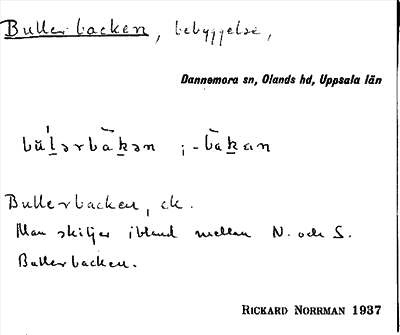 Bullerbacken, bebyggelse,
Dannemora sn, Olands hd, Uppsala län
bù́l̠ərbàk̠ən ; -bàk̠an
Bullerbacken, ek.
Man skiljer ibland mellan N. och S.
Bullerbacken.
RICKARD NORRMAN 1937